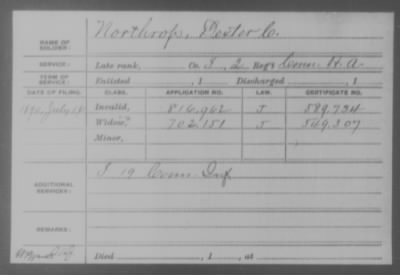 NAME OF SOLDIER: Northrop, Dexter C.
SERVICE: Late rank, Co. I, 2 Reg't Conn H.A.
TERM OF SERVICE: Enlisted , 1 Discharged , 1
DATE OF FILING. CLASS. APPLICATION NO. LAW. CERTIFICATE NO.
1890, July Invalid, 816,962 J 589,724
Widow, 702,151 J 549,307
Minor,
ADDITIONAL SERVICES: I 19 Conn Inf
REMARKS:
Died , 1 , at